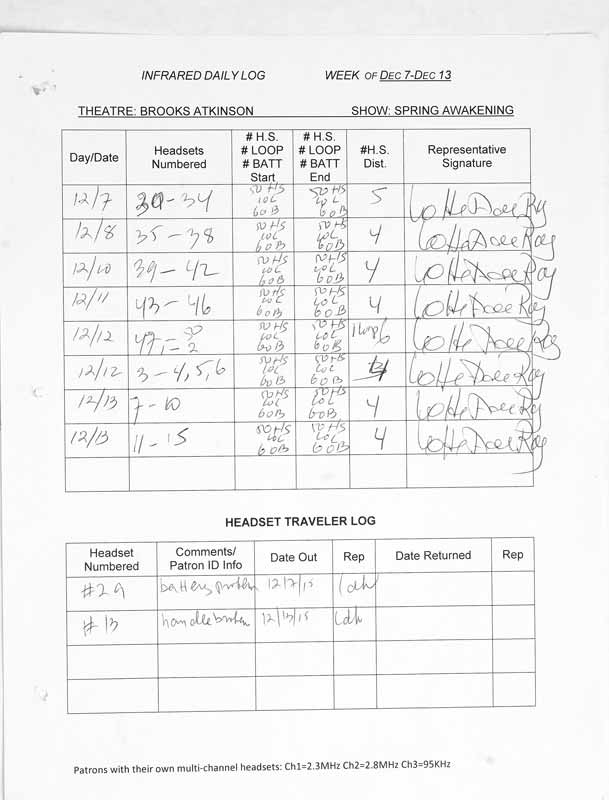 INFRARED DAILY LOG WEEK OF DEC 7-DEC 13
THEATRE: BROOKS ATKINSON SHOW: SPRING AWAKENING
Day/Date Headsets Numbered # H.S. # LOOP # BATT Start # H.S. # LOOP # BATT End #H.S. Dist. Representative Signature
12/7 30-34 50 HS 10L 60B 50 HS 10L 60B 5
12/8 35-38 50 HS 10L 60B 50 HS 10L 60B 4
12/10 39-42 50 HS 10L 60B 50 HS 10L 60B 4
12/11 43-46 50 HS 10L 60B 50 HS 10L 60B 4
12/12 47-50 1-2 50 HS 10L 60B 50 HS 10L 60B 1 Loop 6
12/12 3-4,5,6 50 HS 10L 60B 50 HS 10L 60B
12/13 7-10 50 HS 10L 60B 50 HS 10L 60B 4
12/13 11-15 50 HS 10L 60B 50 HS 10L 60B 4
HEADSET TRAVELER LOG
Headset Numbered Comments/ Patron ID Info Date Out Rep Date Returned Rep
#29 battery problem 12/7/15 Ldh
#13 handle broken 12/13/15 Ldh
Patrons with their own multi-channel headsets: Ch1=2.3MHz Ch2=2.8MHz Ch3=95KHz